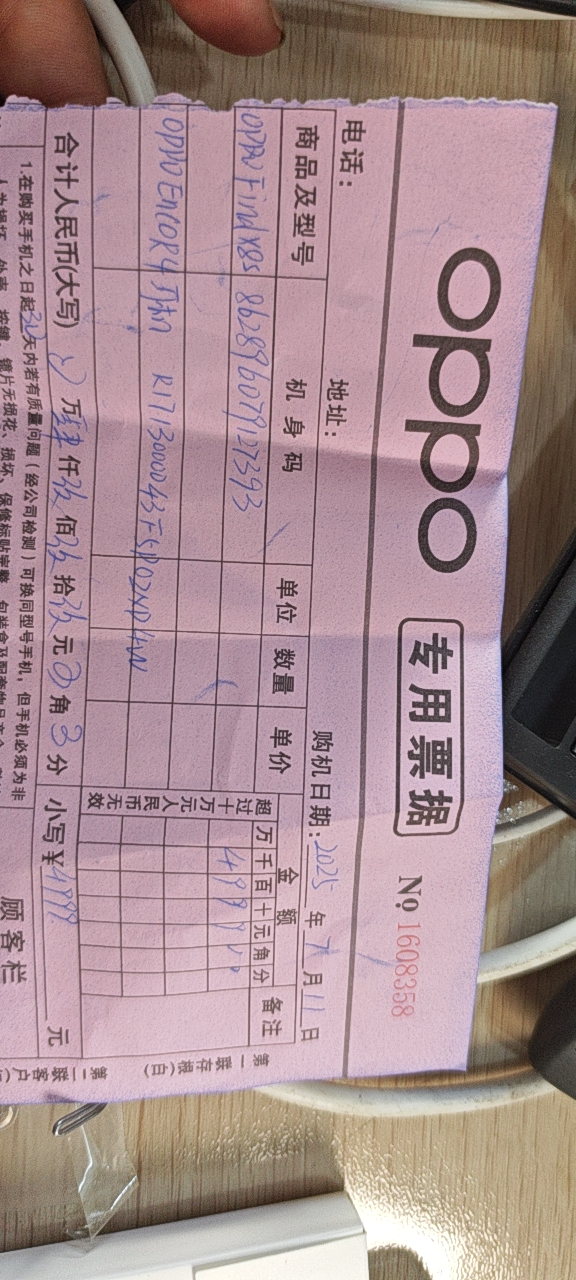 oppo 专用票据 № 1608358
电话： 地址： 购机日期：2025年7月11日
商品及型号 机身码 单位 数量 单价 金额 备注
超过十万元人民币无效 万千百十元角分
OPPO Find X8S 862896079127393 499900
OPPO Enco R4 R17130000043FSP02ND
合计人民币(大写) 万肆仟玖佰玖拾玖元0角0分 小写¥4999 元
1.在购买手机之日起30天内若有质量问题（经公司检测）可换同型号手机，但手机必须为非
镜片无损花、损坏、保修标贴完整
顾客栏
第一联存根(白)
第二联客户